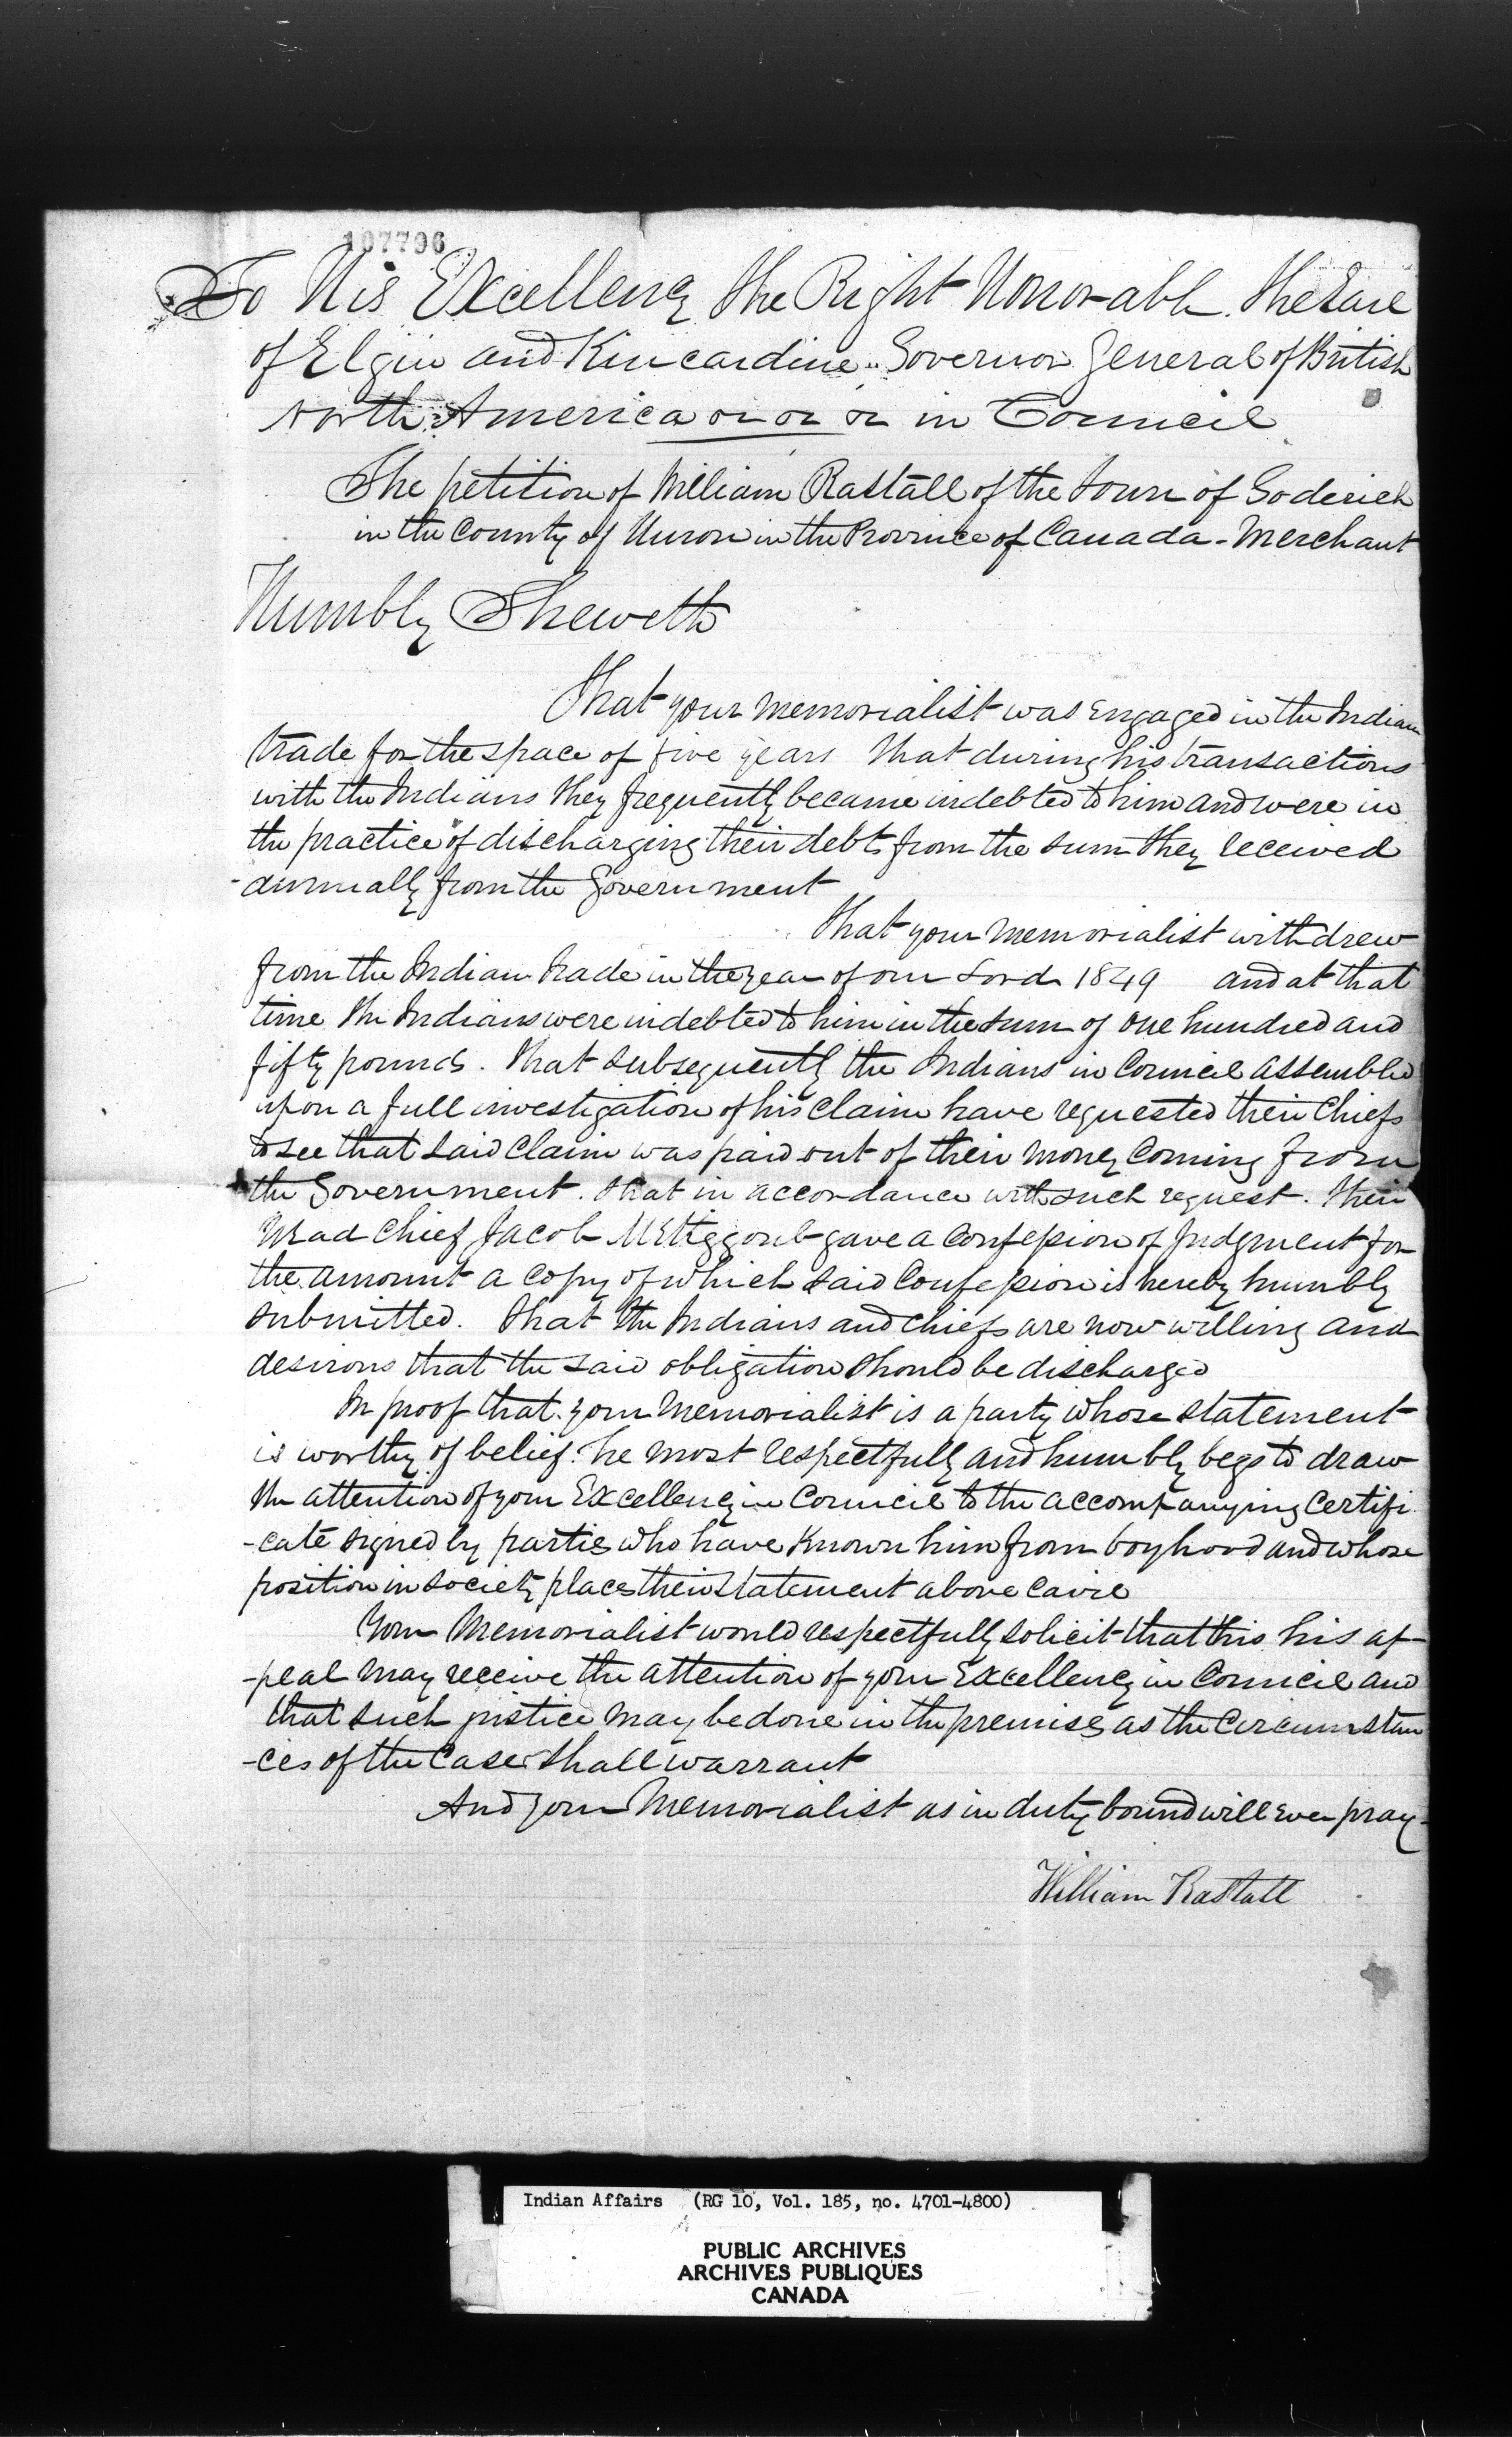 107796
To His Excellency the Right Honorable the Earl
of Elgin and Kincardine Governor General of British
North America &c &c &c in Council
The petition of William Rastall of the Town of Goderich
in the County of Huron in the Province of Canada - Merchant
Humbly Sheweth
That your memorialist was engaged in the Indian
trade for the space of five years that during his transactions
with the Indians they frequently became indebted to him and were in
the practice of discharging their debts from the sum they received
annually from the Government
That your memorialist withdrew
from the Indian trade in the year of our Lord 1849 and at that
time the Indians were indebted to him in the sum of one hundred and
fifty pounds. That subsequently the Indians in Council assembled
upon a full investigation of his claim have requested their Chiefs
to see that said claim was paid out of their money coming from
the Government. That in accordance with such request. Their
Head Chief Jacob Mettiggoub gave a Confession of Judgment for
the amount a copy of which said Confession is hereby humbly
submitted. That the Indians and Chiefs are now willing and
desirous that the said obligation should be discharged
In proof that your memorialist is a party whose statement
is worthy of belief he most respectfully and humbly begs to draw
the attention of your Excellency in Council to the accompanying Certifi
-cate signed by parties who have known him from boyhood and whose
position in society places their statement above cavil
Your Memorialist would respectfully solicit that this his ap-
-peal may receive the attention of your Excellency in Council and
that such justice may be done in the premises as the Circumstan
-ces of the Case shall warrant
And your Memorialist as in duty bound will ever pray
William Rastall
Indian Affairs (RG 10, Vol. 185, no. 4701-4800)
PUBLIC ARCHIVES
ARCHIVES PUBLIQUES
CANADA